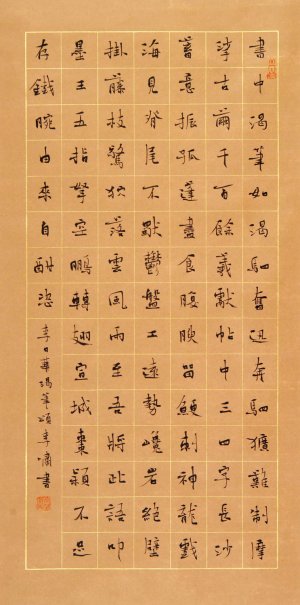 書中渴筆如渴駟奮迅奔駟獷難制摩
挲古繭千百餘羲獻帖中三四字長沙
蓄意振孤蓬盡食腹腴留鯁刺神龍戲
海見脊尾不默鬱盤工遠勢巉岩絕壁
掛藤枝驚狖落雲風雨至吾將此語叩
墨王五指擎空鵬轉翅宣城棗穎不足
存鐵腕由來自酣恣 李日華渴筆頌李嘯書